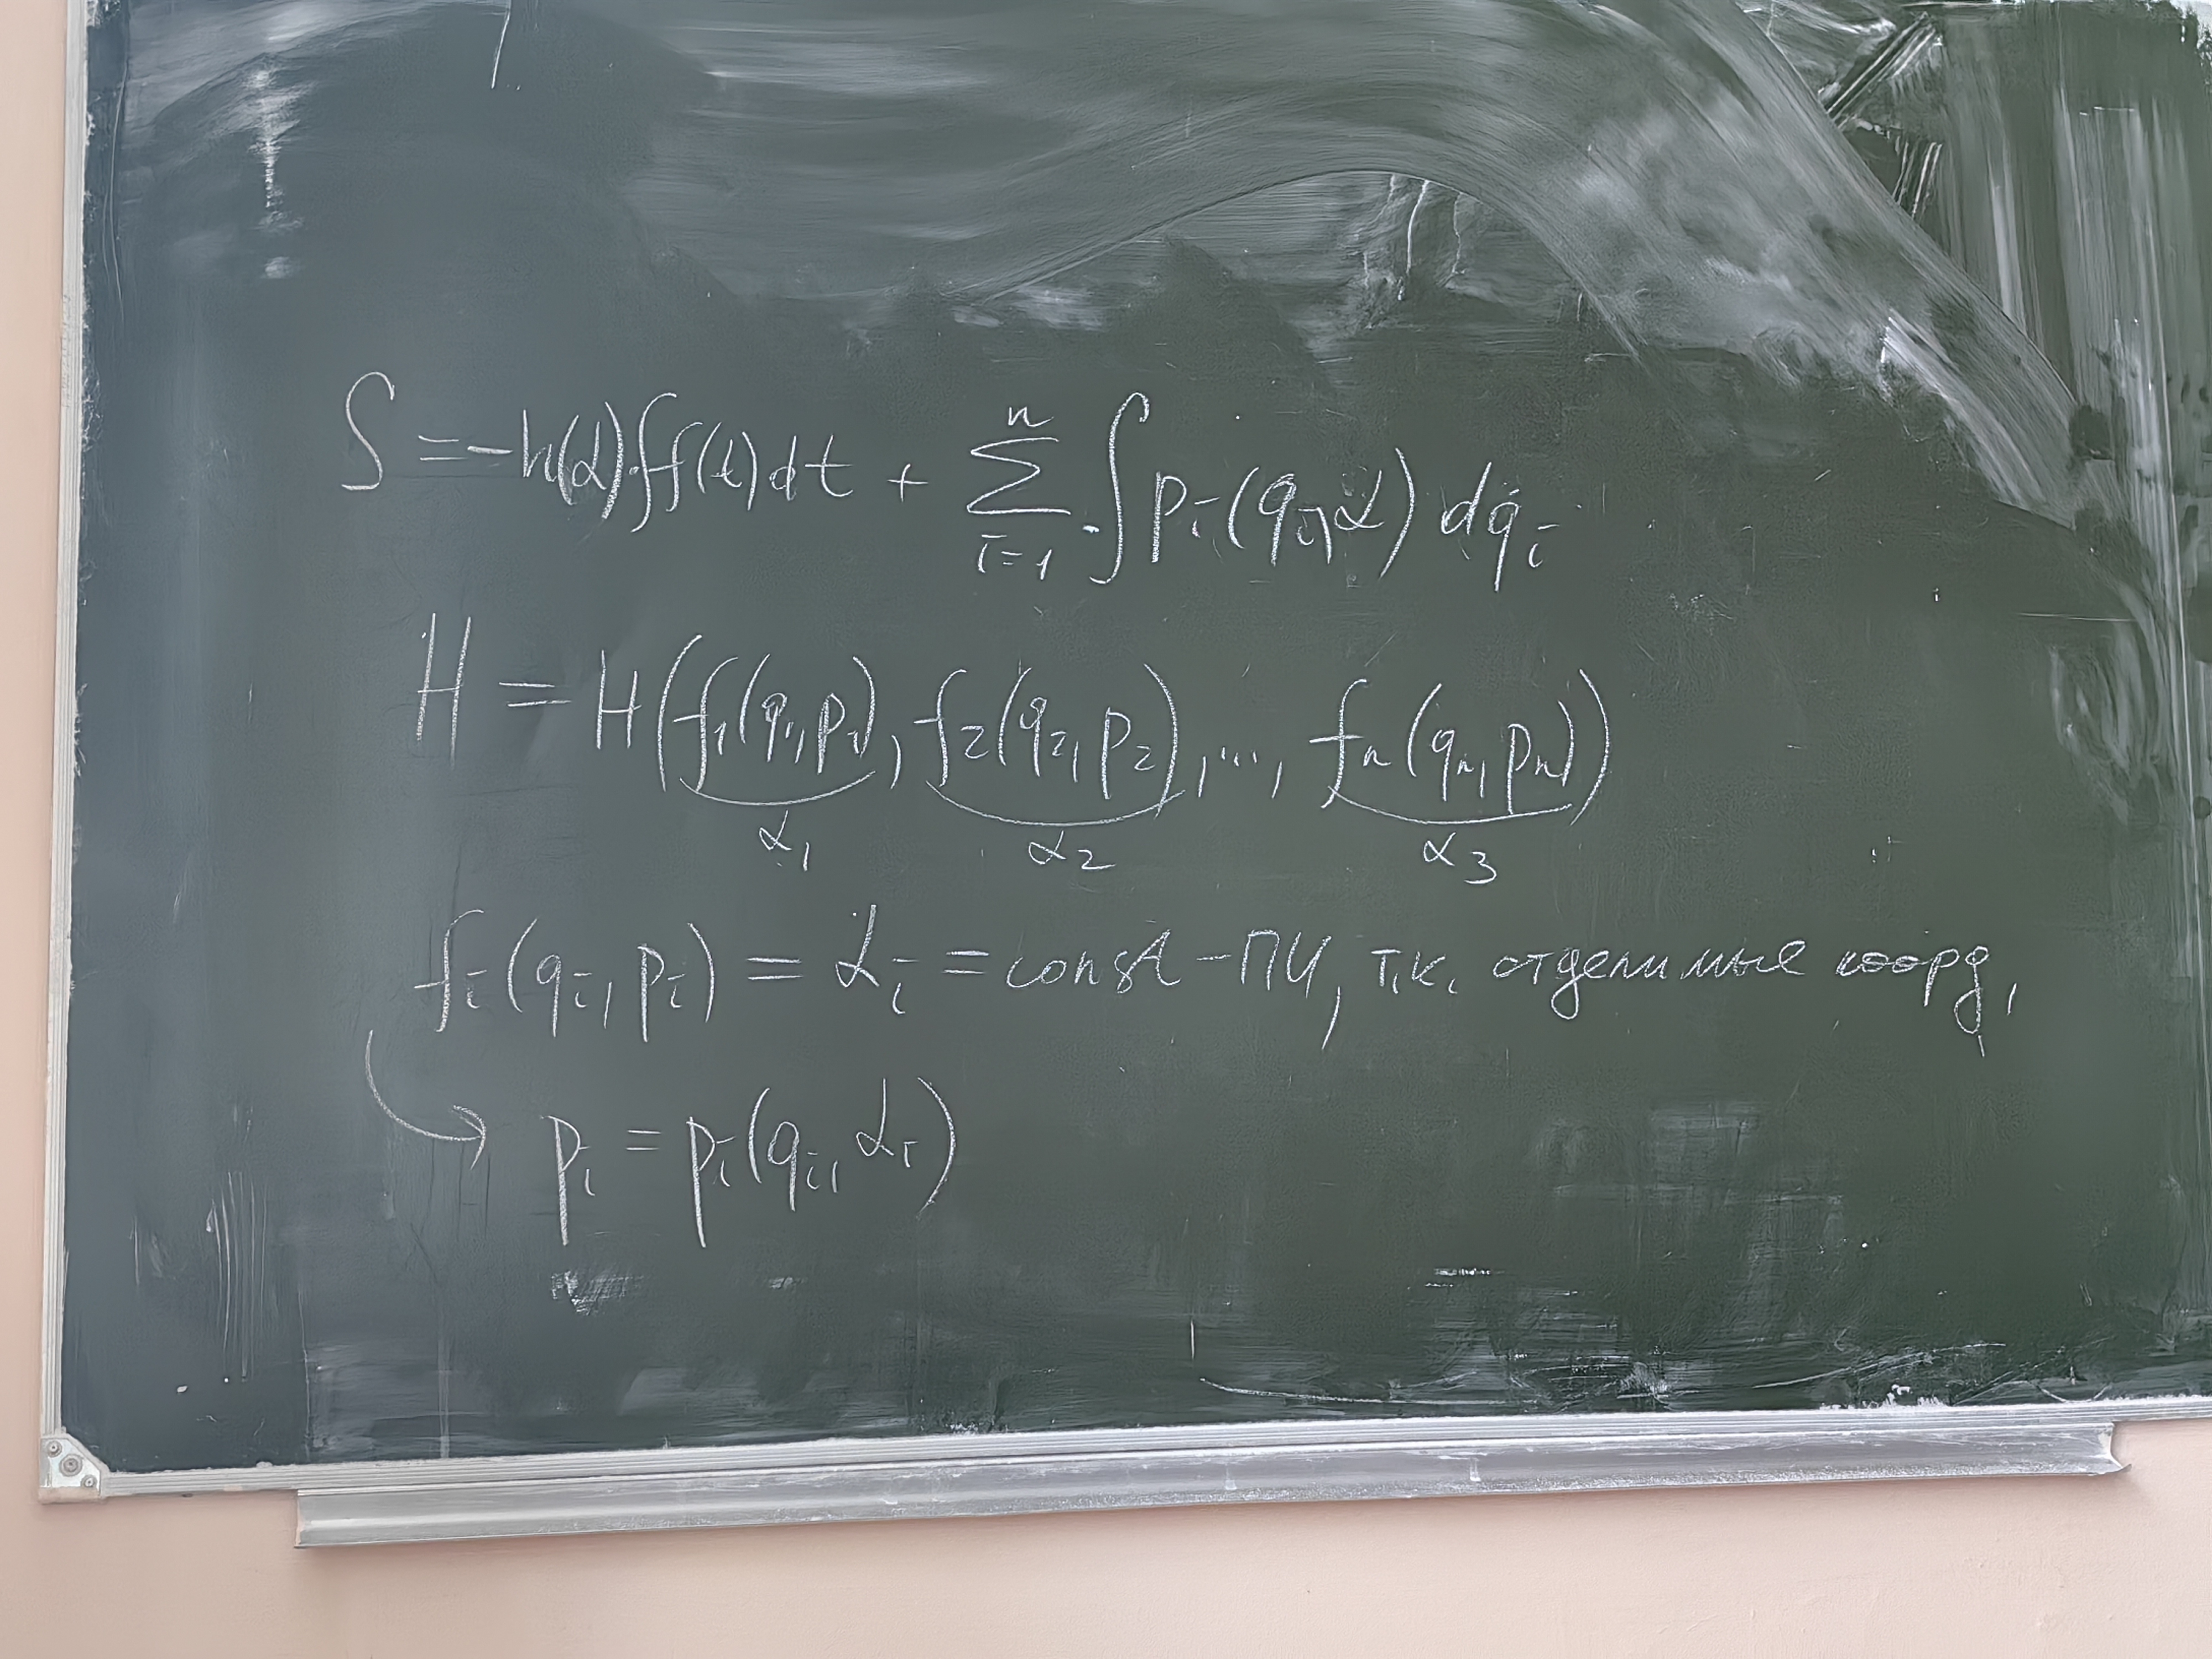 S = -h(α)·∫f(t)dt + ∑_{i=1}^{n} ∫p_i(q_i, α) dq_i
H = H(f_1(q_1, p_1), f_2(q_2, p_2), ..., f_n(q_n, p_n))
α_1 α_2 α_3
f_i(q_i, p_i) = α_i = const - ПИ, т.к. отделимые коорд,
p_i = p_i(q_i, α_i)